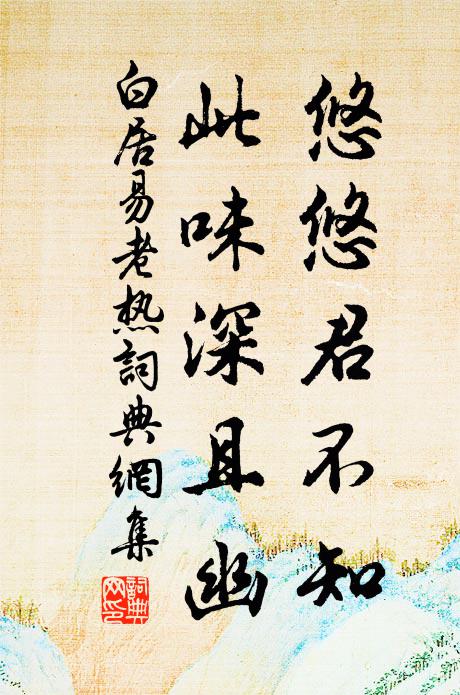 悠悠君不知
此味深且幽
白居易老热詞典網集